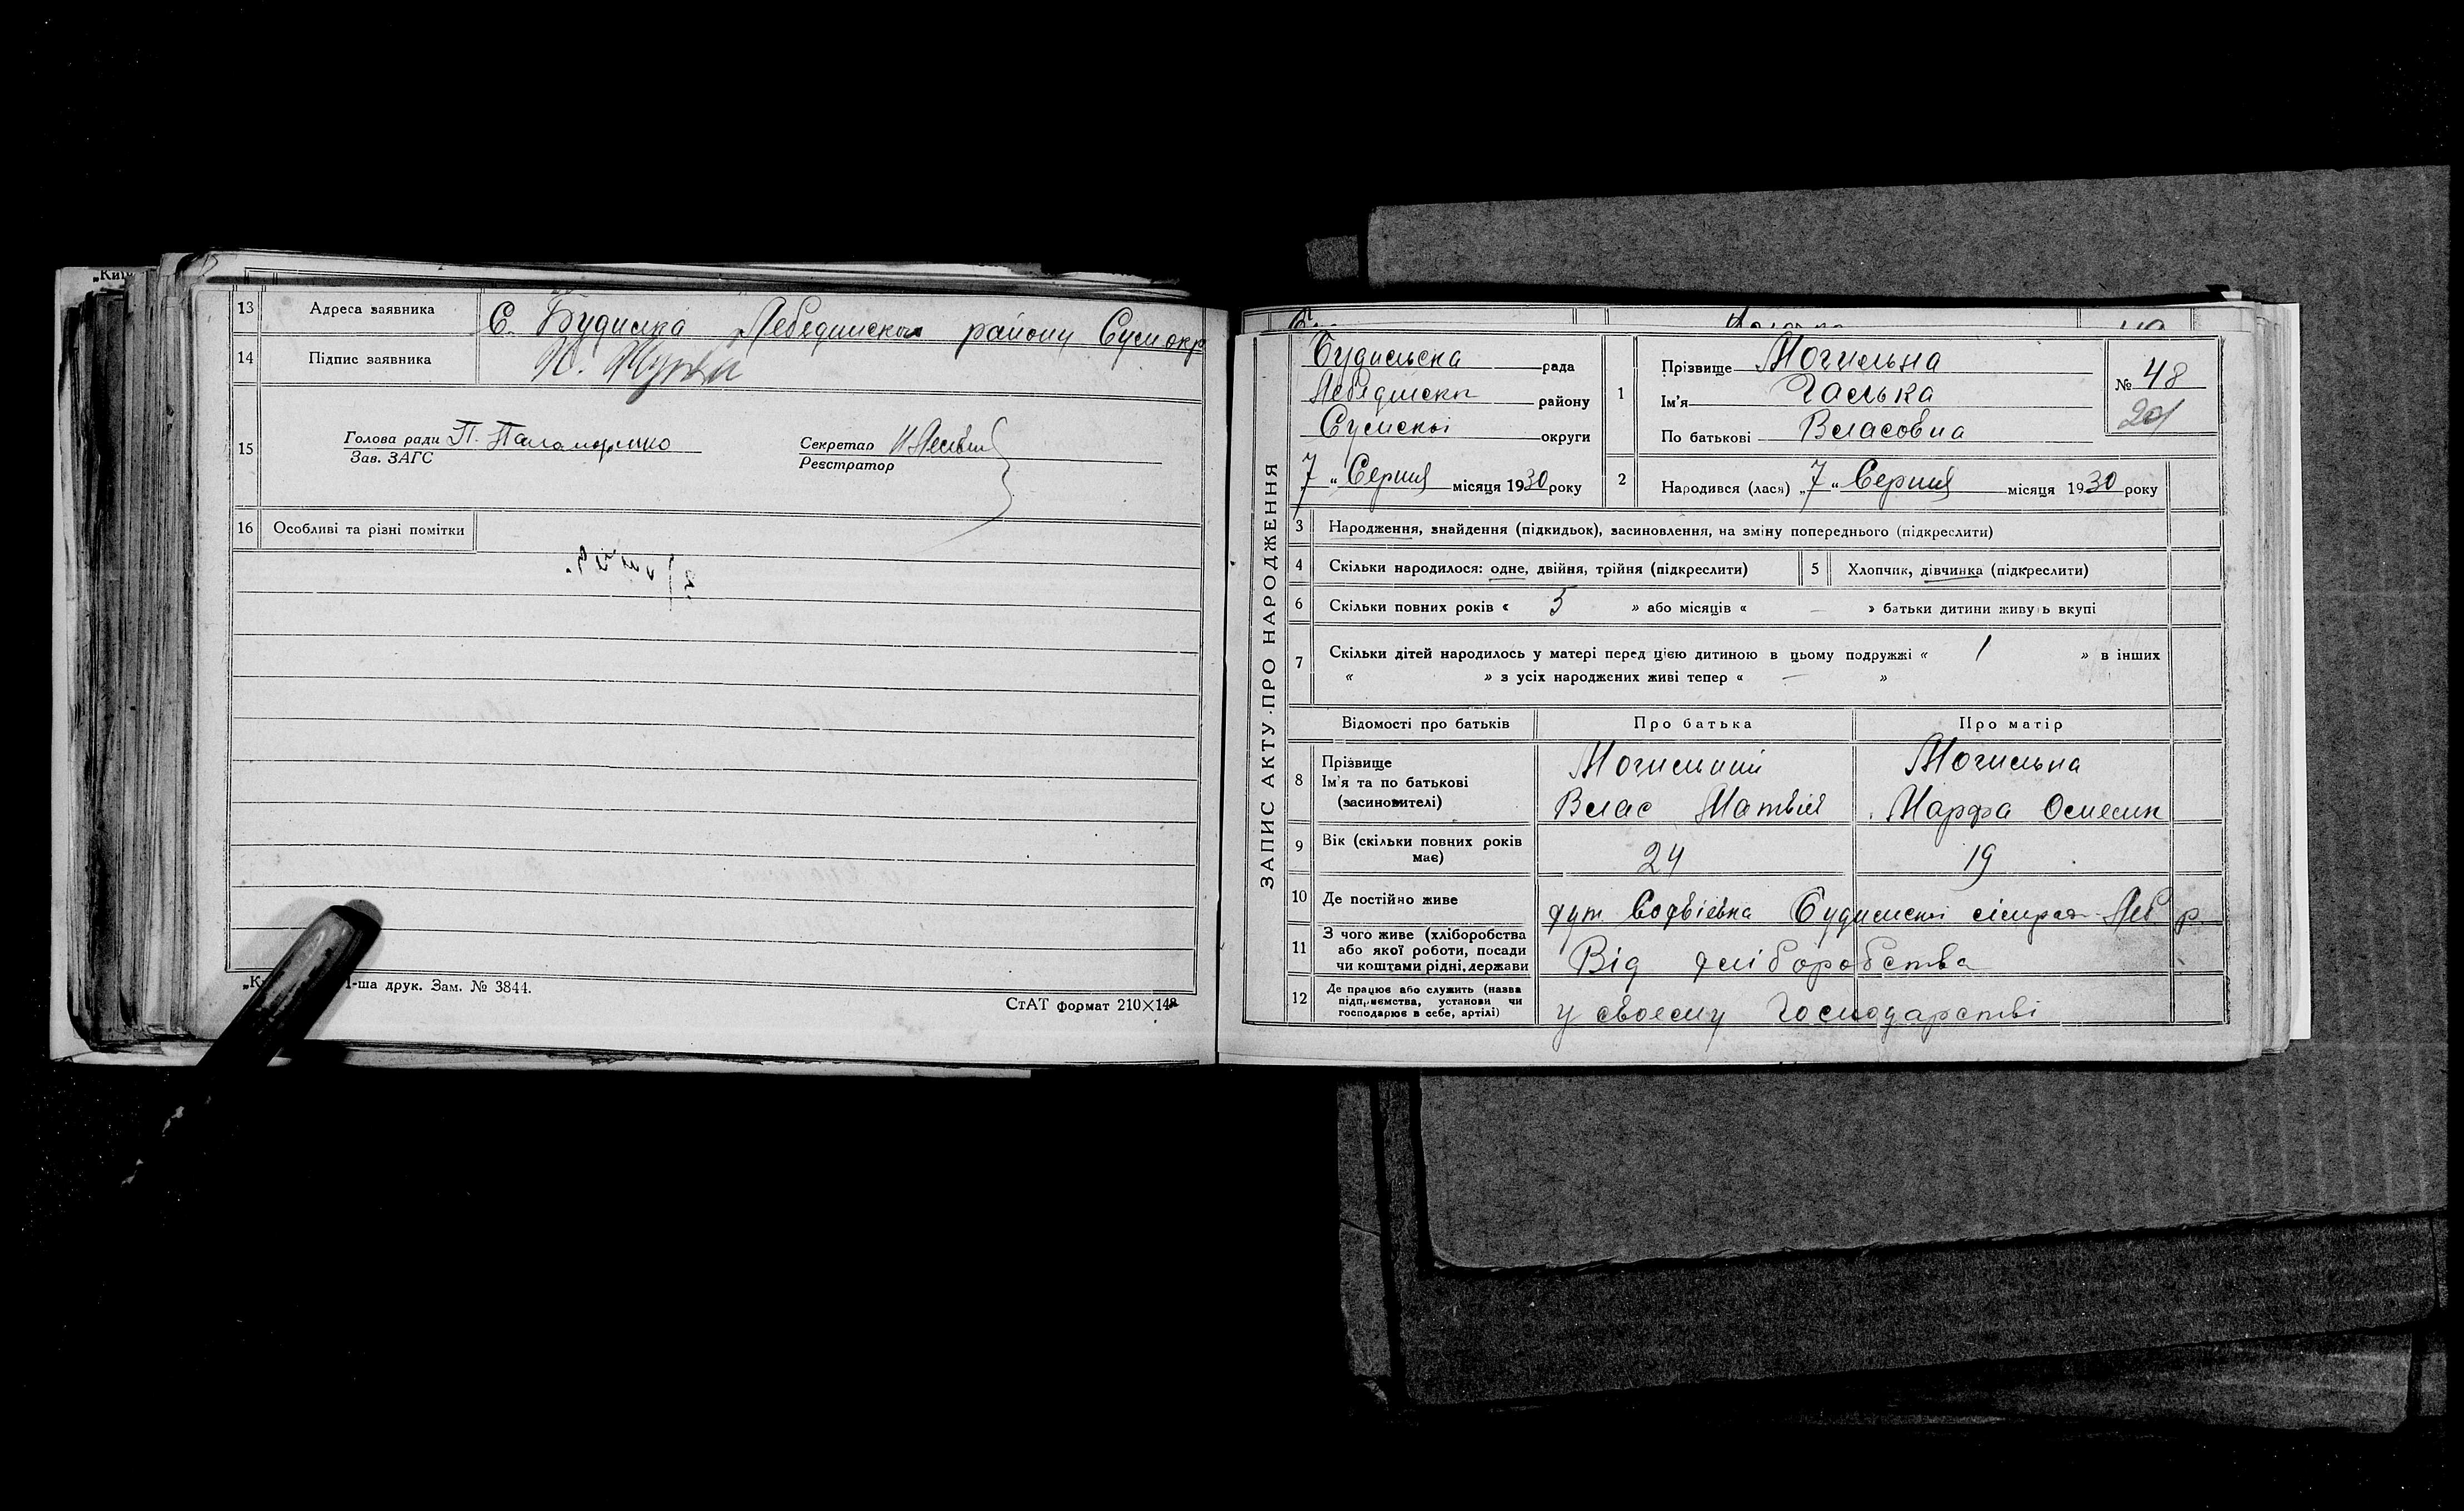 13 Адреса заявника С. Будилка Лебединськ району Сум окр
14 Підпис заявника
15 Голова ради П. Паламаренко Секретар
Зав. ЗАГС Реєстратор
16 Особливі та різні помітки
1-ша друк. Зам. № 3844.
СтАТ формат 210×148
ЗАПИС АКТУ ПРО НАРОДЖЕННЯ
Будильська рада
Лебединськ району
Сумської округи
7 „ Серпня місяця 1930 року
1 Прізвище Могильна
Ім'я Галька
По батькові Власовна
№ 48
201
2 Народився (лася) „7 „ Серпня місяця 1930 року
3 Народження, знайдення (підкидьок), засиновлення, на зміну попереднього (підкреслити)
4 Скільки народилося: одне, двійня, трійня (підкреслити) 5 Хлопчик, дівчинка (підкреслити)
6 Скільки повних років « 5 » або місяців « — » батьки дитини живуть вкупі
7 Скільки дітей народилось у матері перед цією дитиною в цьому подружжі « 1 » в інших
« » з усіх народжених живі тепер « — »
Відомості про батьків Про батька Про матір
8 Прізвище
Ім'я та по батькові
(засиновителі)
Могильний Могильна
Влас Матвіїв Марфа Омелян
9 Вік (скільки повних років
має) 24 19
10 Де постійно живе хут. Будильської сільрад Леб р.
11 З чого живе (хліборобства
або якої роботи, посади
чи коштами рідні, держави
Від хліборобства
12 Де працює або служить (назва
підприємства, установи чи
господарює в себе, артілі)
у своєму господарстві